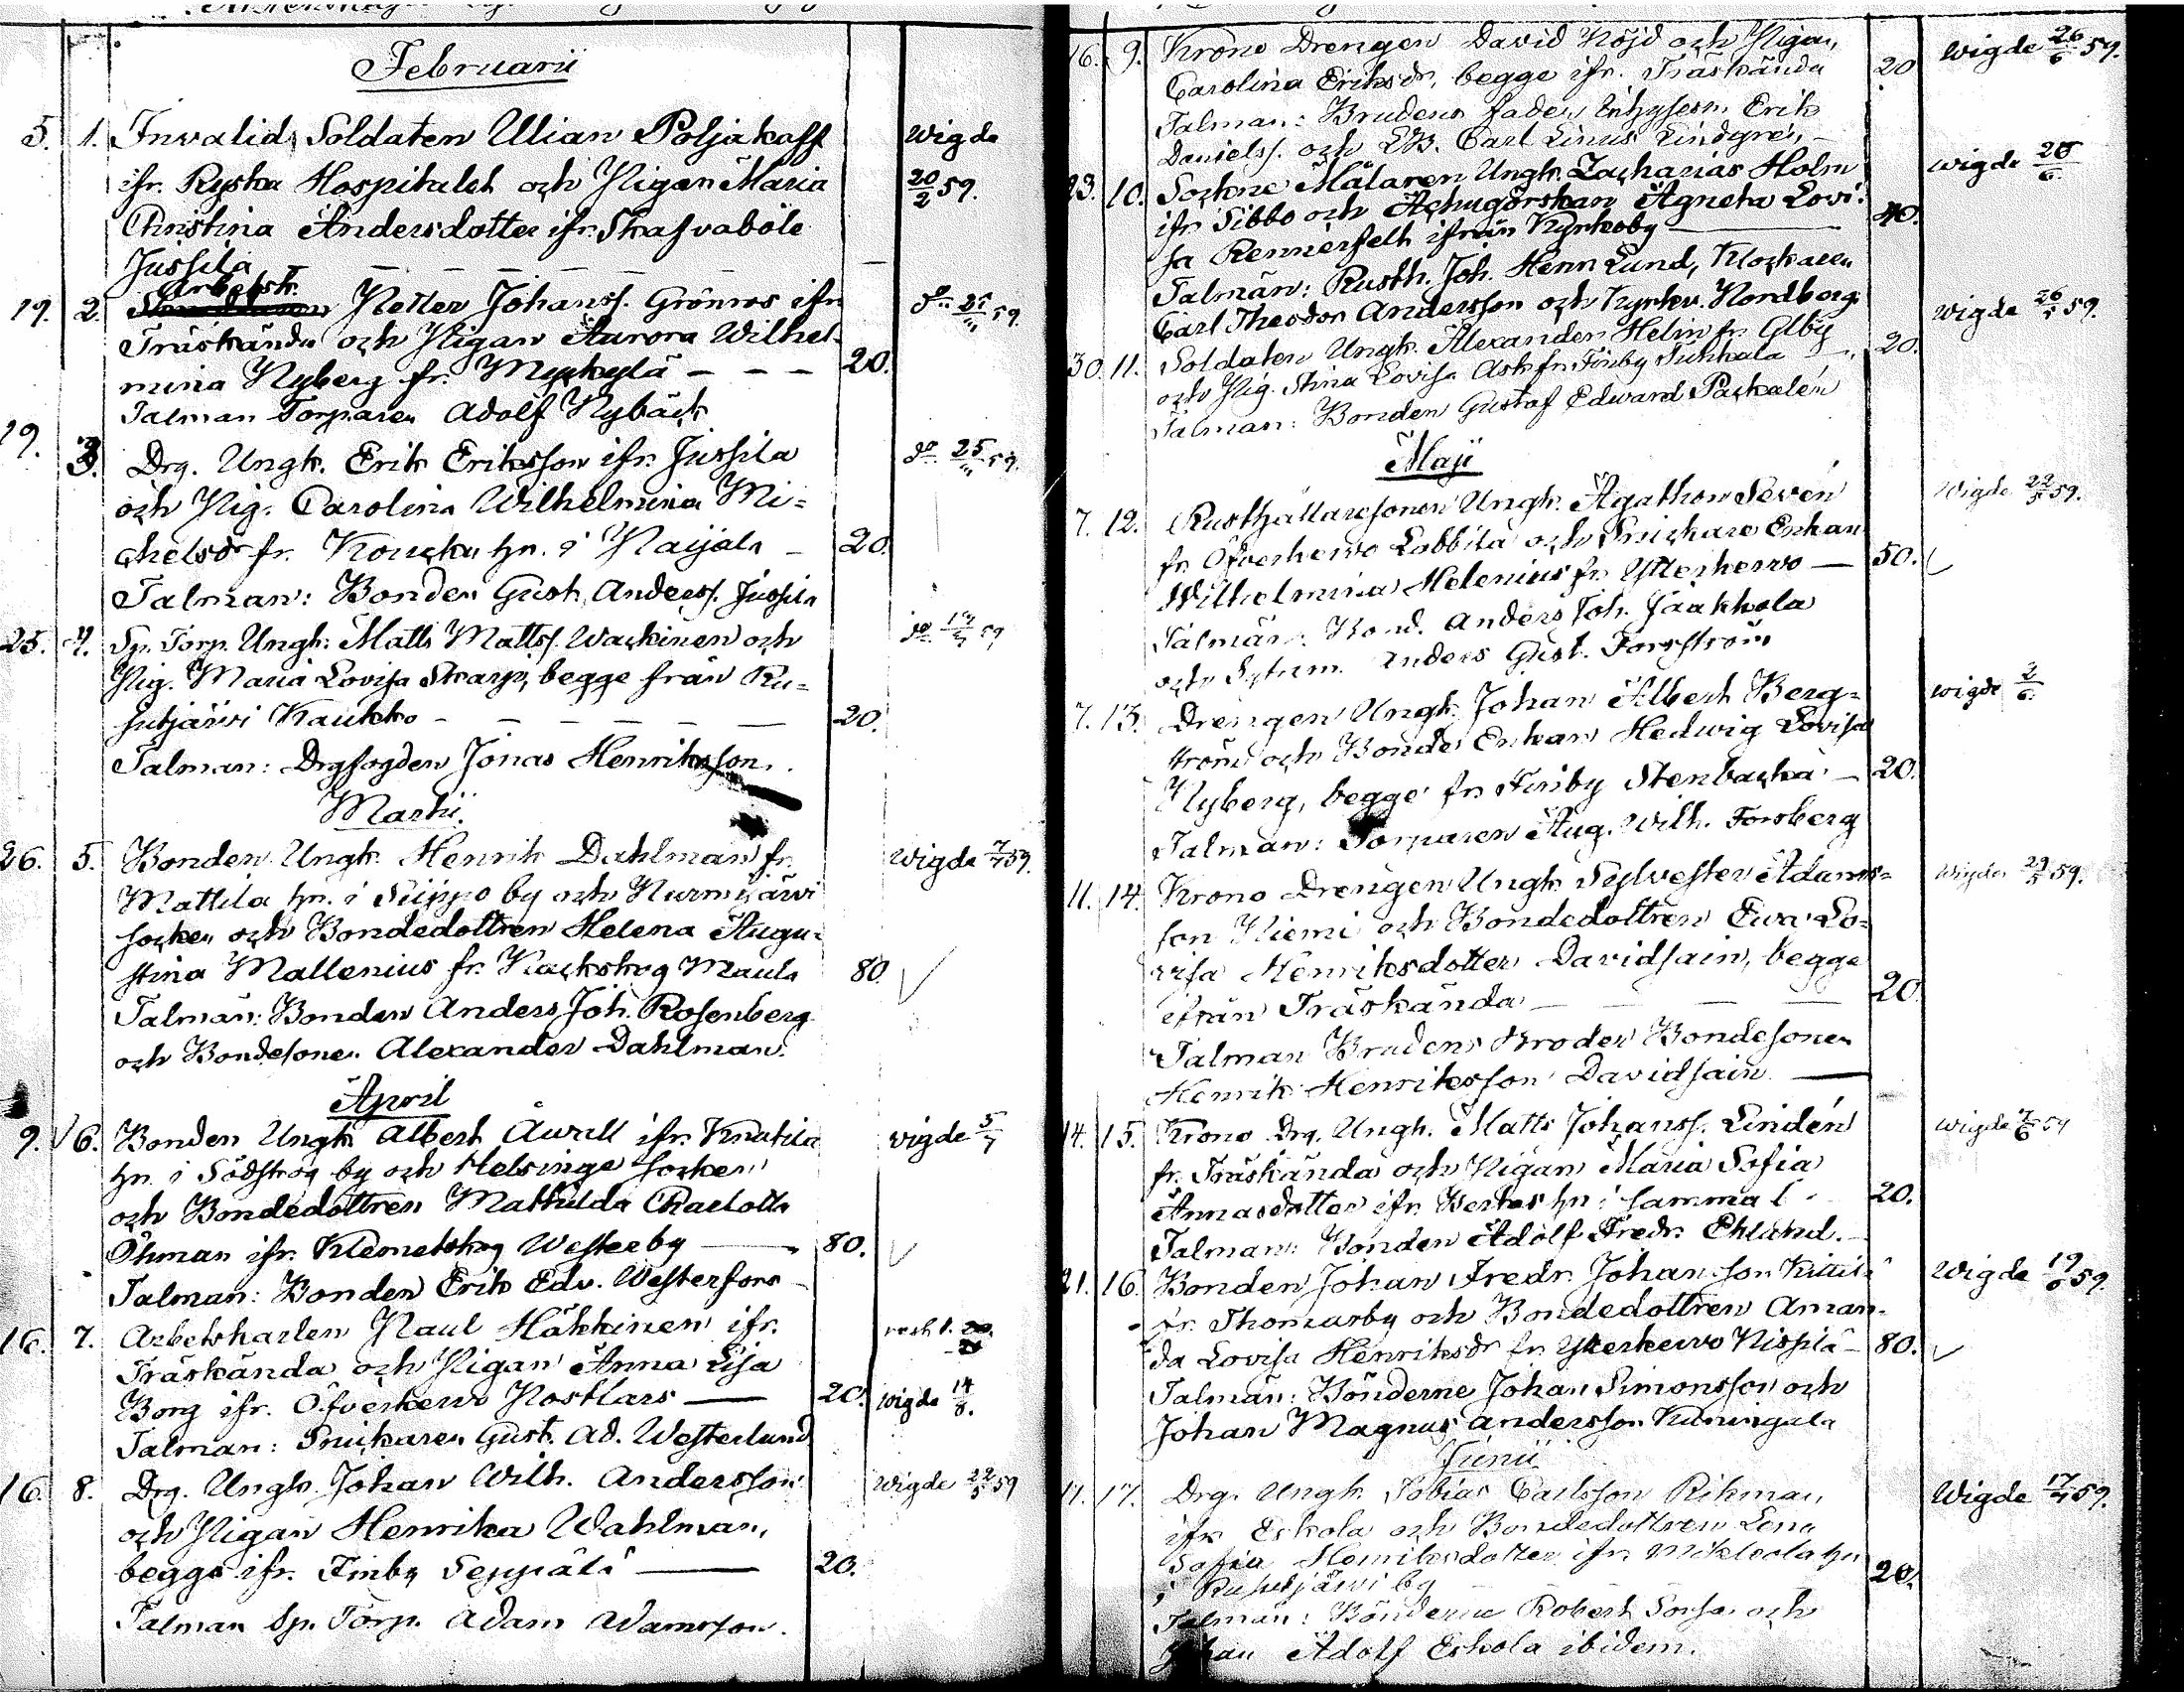 Februarii
5. 1. Invalid Soldaten Ulian Poljakoff Wigde
ifr. Ryska Hospitalet och Pigan Maria 20/2 59.
Christina Andersdotter ifr. Skafvaböle
Jussila — — — — — —
Arbetsk.
19. 2. Petter Johanss. Grönroos ifr. do 25/ 59.
Träskända och Pigan Aurora Wilhel-
mina Nyberg fr. Myrkylä — — — 20.
Talman Torparen Adolf Nybäck
19. 3. Drg. Ungk. Erik Eriksson ifr. Jussila do 25/ 59.
och Pig. Carolina Wilhelmina Mi-
chelsdr fr. hn. i Paijala — 20.
Talman: Bonden Gust. Anderss. Jussila
25. 4. Sp. Torp. Ungk. Matts Mattss. Wackinen och do 59
Pig. Maria Lovisa Skarp, begge från Ru-
sutjärvi Kaukko — — — — — 20.
Talman: Drgfogden Jonas Henriksson.
Martii.
26. 5. Bonden Ungk. Henrik Dahlman fr. Wigde 7/7 59.
Mattila hn. i Siippo by och Nurmijärvi
socken och Bondedottren Helena Augu-
stina Mallenius fr. Nackskog Maula 80.
Talmän: Bonden Anders Joh. Rosenberg
och Bondesonen Alexander Dahlman.
April
9. 6. Bonden Ungk. Albert Åvall ifr. Knutila wigde 5/7
hn. i Södskog by och Helsinge socken
och Bondedottren Mathilda Charlotta
Öhman ifr. Klemetskog Westerby — 80.
Talman: Bonden Erik Edv. Westerfors
16. 7. Arbetskarlen Paul Häkkinen ifr.
Träskända och Pigan Anna Lisa
Borg ifr. Öfverkervo Nostlars — 20. wigde 14/8.
Talman: Snickaren Gust. Ad. Westerlund
16. 8. Drg. Ungk. Johan Wilh. Andersson Wigde 22/5 59
och Pigan Henrika Wahlman,
begge ifr. Finby Seppälä — 20.
Talman Sp. Torp. Adam Adamsson.
16. 9. Krono Drengen David Höjd och Pigan Wigde 26/6 59.
Carolina Eriksdr, begge ifr. Träskända 20
Talman: Brudens fader Inhysesn. Erik
Danielss. och Carl Linus Lindgren
23. 10. Sockne Målaren Ungk. Zacharias Holm wigde 26/6
ifr. Sibbo och Agneta Lovi-
sa Rennerfelt ifrån Kyrkoby — 40.
Talmän: Rusth. Joh. Henr. Lund, Klockaren
Carl Theodor Andersson och Kyrkv. Nordberg.
30. 11. Soldaten Ungk. Alexander Helin fr. Alby 20. Wigde 26/ 59.
och Pig. Stina Lovisa Ask fr. Finby Tuhkala
Talman: Bonden Gustaf Edward Packalén
Maji
7. 12. Rusthållaresonen Ungk. Agathon Sevén Wigde 22/5 59.
fr. Öfverkervo Labbila och Snickare Enkan
Wilhelmina Helenius fr. Ytterkervo — 50.
Talmän: Bond. Anders Joh. Jaakkola
och Sytnm. Anders Gust. Forsström
7. 13. Drengen Ungk. Johan Albert Berg- wigde 2/6.
ström och Bonde Enkan Hedwig Lovisa
Nyberg, begge fr. Finby Stenbacka — 20.
Talman: Torparen Aug. Wilh. Forsberg
11. 14. Krono Drengen Ungk. Sylvester Adams- Wigde 29/5 59.
son Niemi och Bondedottren Eva Lo-
visa Henriksdotter Davidsain, begge
ifrån Träskända — — — 20.
Talman Brudens Broder Bondesonen
Henrik Henriksson Davidsain —
14. 15. Krono Drg. Ungk. Matts Johanss. Lindén Wigde /6 59
fr. Träskända och Pigan Maria Sofia
Annasdotter ifr. hn. i samma 20.
Talman: Bonden Adolf Fredr. Eklund.
21. 16. Bonden Johan Fredr. Johansson Kittilä Wigde 19/6 59.
fr. Thomasby och Bondedottren Aman-
da Lovisa Henriksdr fr. Ytterkervo Nissilä — 80.
Talmän: Bönderne Johan Simonsson och
Johan Magnus Andersson Kuningala
Junii
11. 17. Drg. Ungk. Tobias Carlsson Rikman, Wigde 17/7 59.
ifr. Eskola och Bondedottren Lena
Sofia Henriksdotter ifr. Mikkola hn
i Rusutjärvi by 20.
Talmän: Bönderne Robert och
Johan Adolf Eskola ibidem.